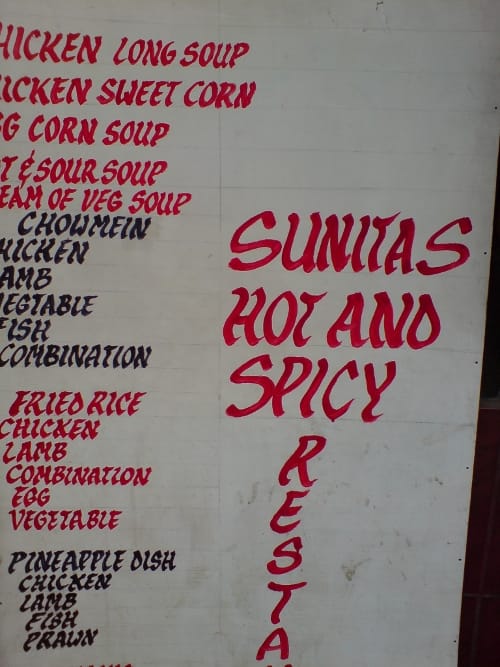 HICKEN LONG SOUP
HICKEN SWEET CORN
GG CORN SOUP
T & SOUR SOUP
EAM OF VEG SOUP
CHOWMEIN
HICKEN
AMB
VEGTABLE
FISH
COMBINATION
FRIED RICE
CHICKEN
LAMB
COMBINATION
EGG
VEGETABLE
PINEAPPLE DISH
CHICKEN
LAMB
FISH
PRAWN
SUNITAS
HOT AND
SPICY
R
E
S
T
A